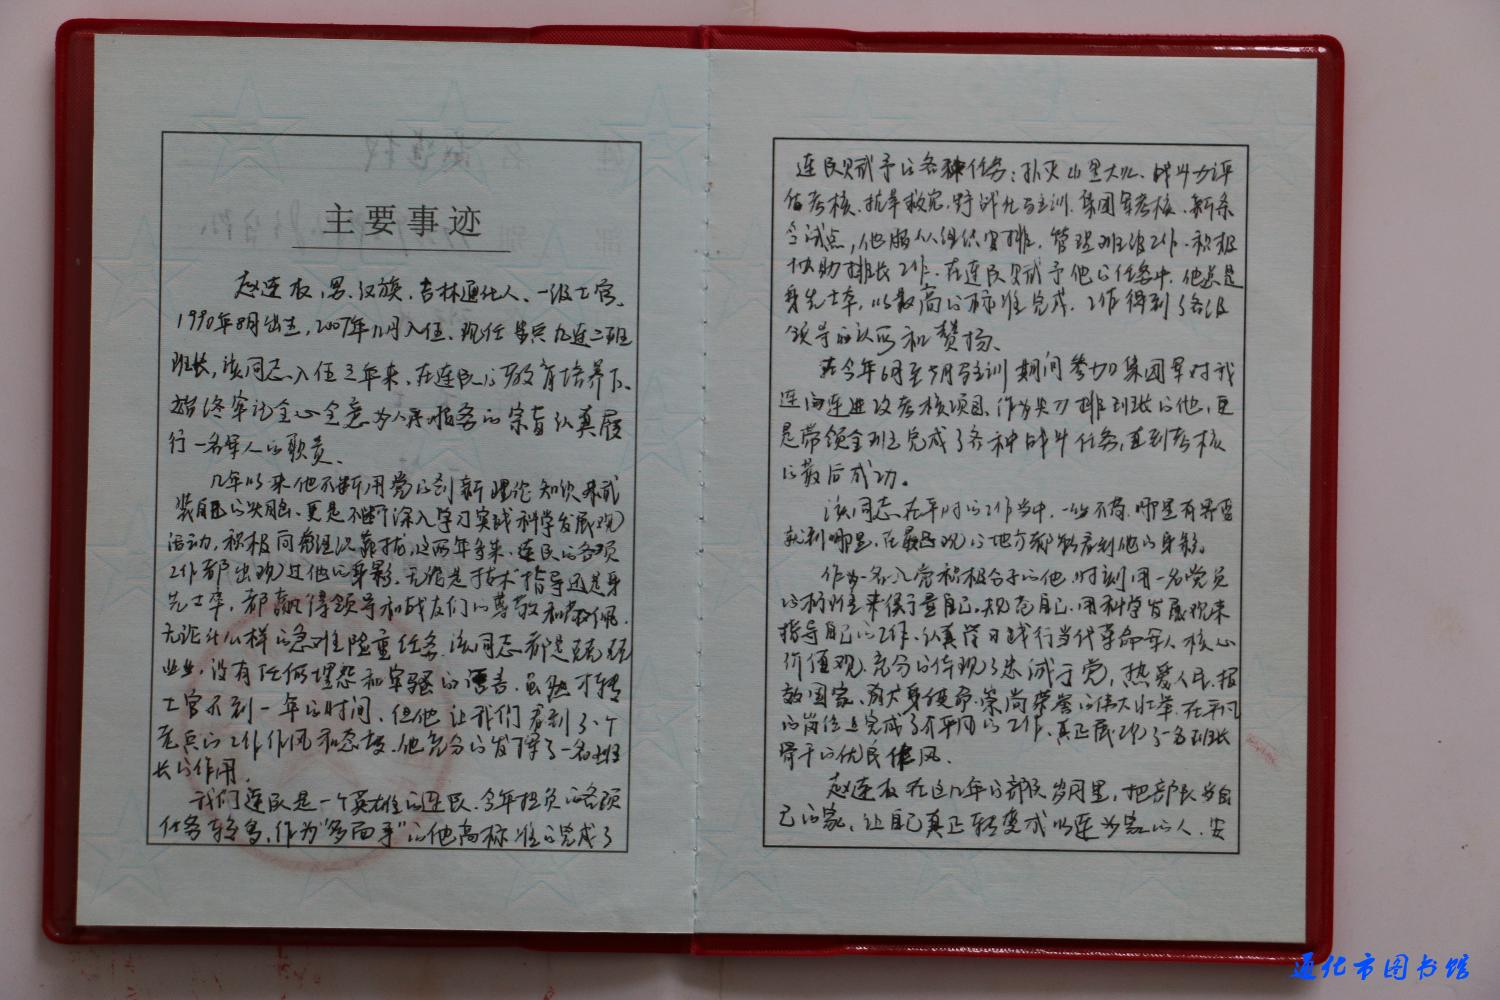 主要事迹
赵连权，男、汉族、吉林通化人、一级士官、
1990年8月出生，2007年12月入伍、现任 九连二班
班长，该同志入伍三年来、在连队的教育培养下、
始终牢记全心全意为人民服务的宗旨认真履
行一名军人的职责、
几年以来他不断用党的创新理论知识来武
装自己的头脑、更是不断深入学习实践科学发展观
活动，积极向党组织靠拢，这两年多来、连队的各项
工作都出现过他的身影、无论是技术指导还是身
先士卒，都赢得领导和战友们的尊敬和敬佩、
无论什么样的急难险重任务、该同志都是兢兢
业业，没有任何埋怨和牢骚的语言、虽然才转
士官不到一年的时间、但他让我们看到了一个
老兵的工作作风和态度、他充分的发挥了一名班
长的作用、
我们连队是一个英雄的连队、今年担负的各项
任务较多，作为“多面手”的他高标准的完成了
连队赋予的各种任务：扑灭山里大火、战斗力评
估考核、抗旱救灾、野战化驻训、集团军考核、新条
令试点，他服从组织安排、管理班级工作、积极
协助排长工作、在连队赋予他的任务中、他总是
身先士卒，以最高的标准完成、工作得到了各级
领导的认可和赞扬、
在今年6月至9月驻训期间参加集团军对我
连 连进攻考核项目、作为尖刀排班长的他，更
是带领全班完成了各种战斗任务，直到考核
的最后成功。
该同志在平时的工作当中，一丝不苟、哪里有需要
就到哪里、在最 的地方都能看到他的身影。
作为一名入党积极分子的他、时刻用一名党员
的标准来衡量自己、规范自己、用科学发展观来
指导自己的工作、认真学习践行当代革命军人核心
价值观、充分的体现了忠诚于党，热爱人民、报
效国家、献身使命、崇尚荣誉的伟大壮举、在平凡
的岗位上完成了不平凡的工作、真正展现了一名班长
骨干的优良作风、
赵连权在这几年的部队岁月里，把部队当自
己的家、让自己真正转变成以连为家的人、安
通化市图书馆